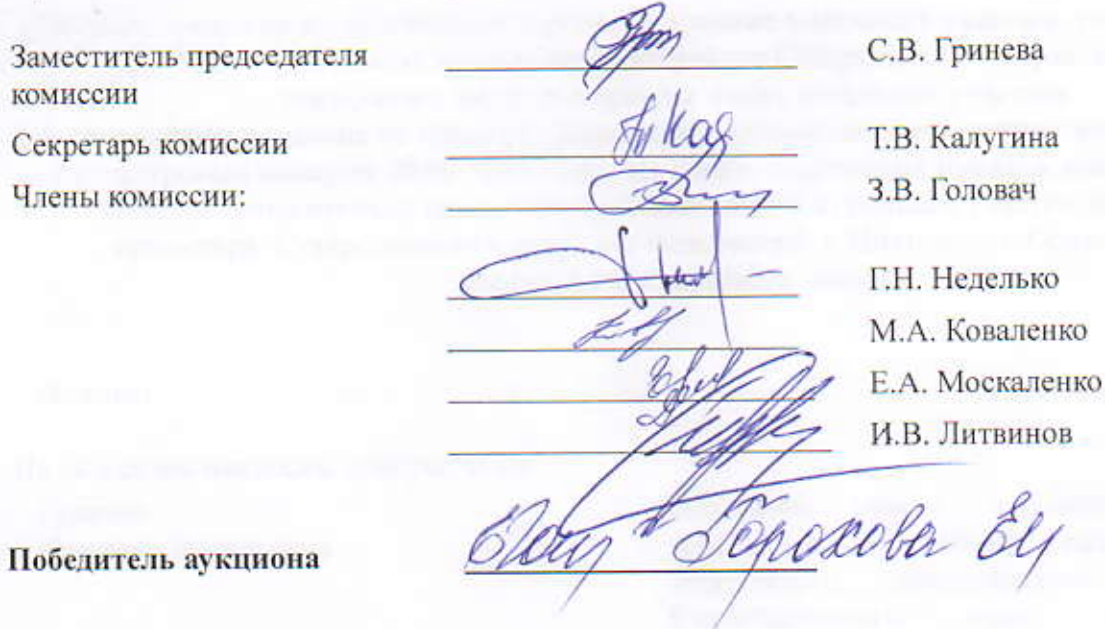 Заместитель председателя С.В. Гринева
комиссии
Секретарь комиссии Т.В. Калугина
Члены комиссии: З.В. Головач
Г.Н. Неделько
М.А. Коваленко
Е.А. Москаленко
И.В. Литвинов
Победитель аукциона Горохова